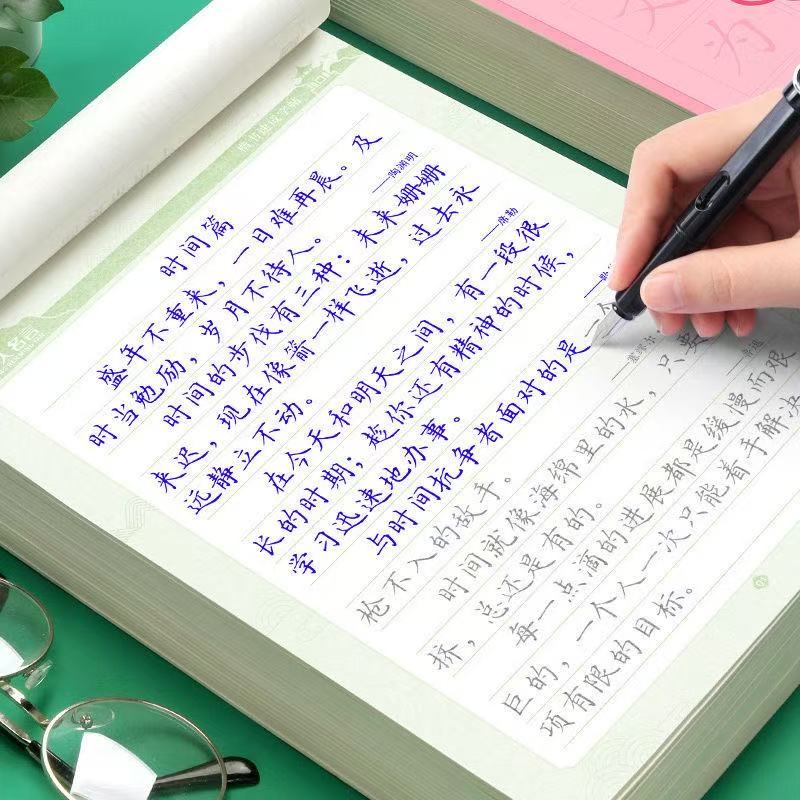 楷书速成字帖
人名言
时间篇
盛年不重来，一日难再晨。及
时当勉励，岁月不待人。
——陶渊明
时间的步伐有三种：未来姗姗
来迟，现在像箭一样飞逝，过去永
远静立不动。
——席勒
在今天和明天之间，有一段很
长的时期；趁你还有精神的时候，
学习迅速地办事。
与时间抗争者面对的是一个
枪不入的敌手。
——塞缪尔
时间就像海绵里的水，只要
挤，总还是有的。
——鲁迅
每一点滴的进展都是缓慢而艰
巨的，一个人一次只能着手解决
项有限的目标。
为